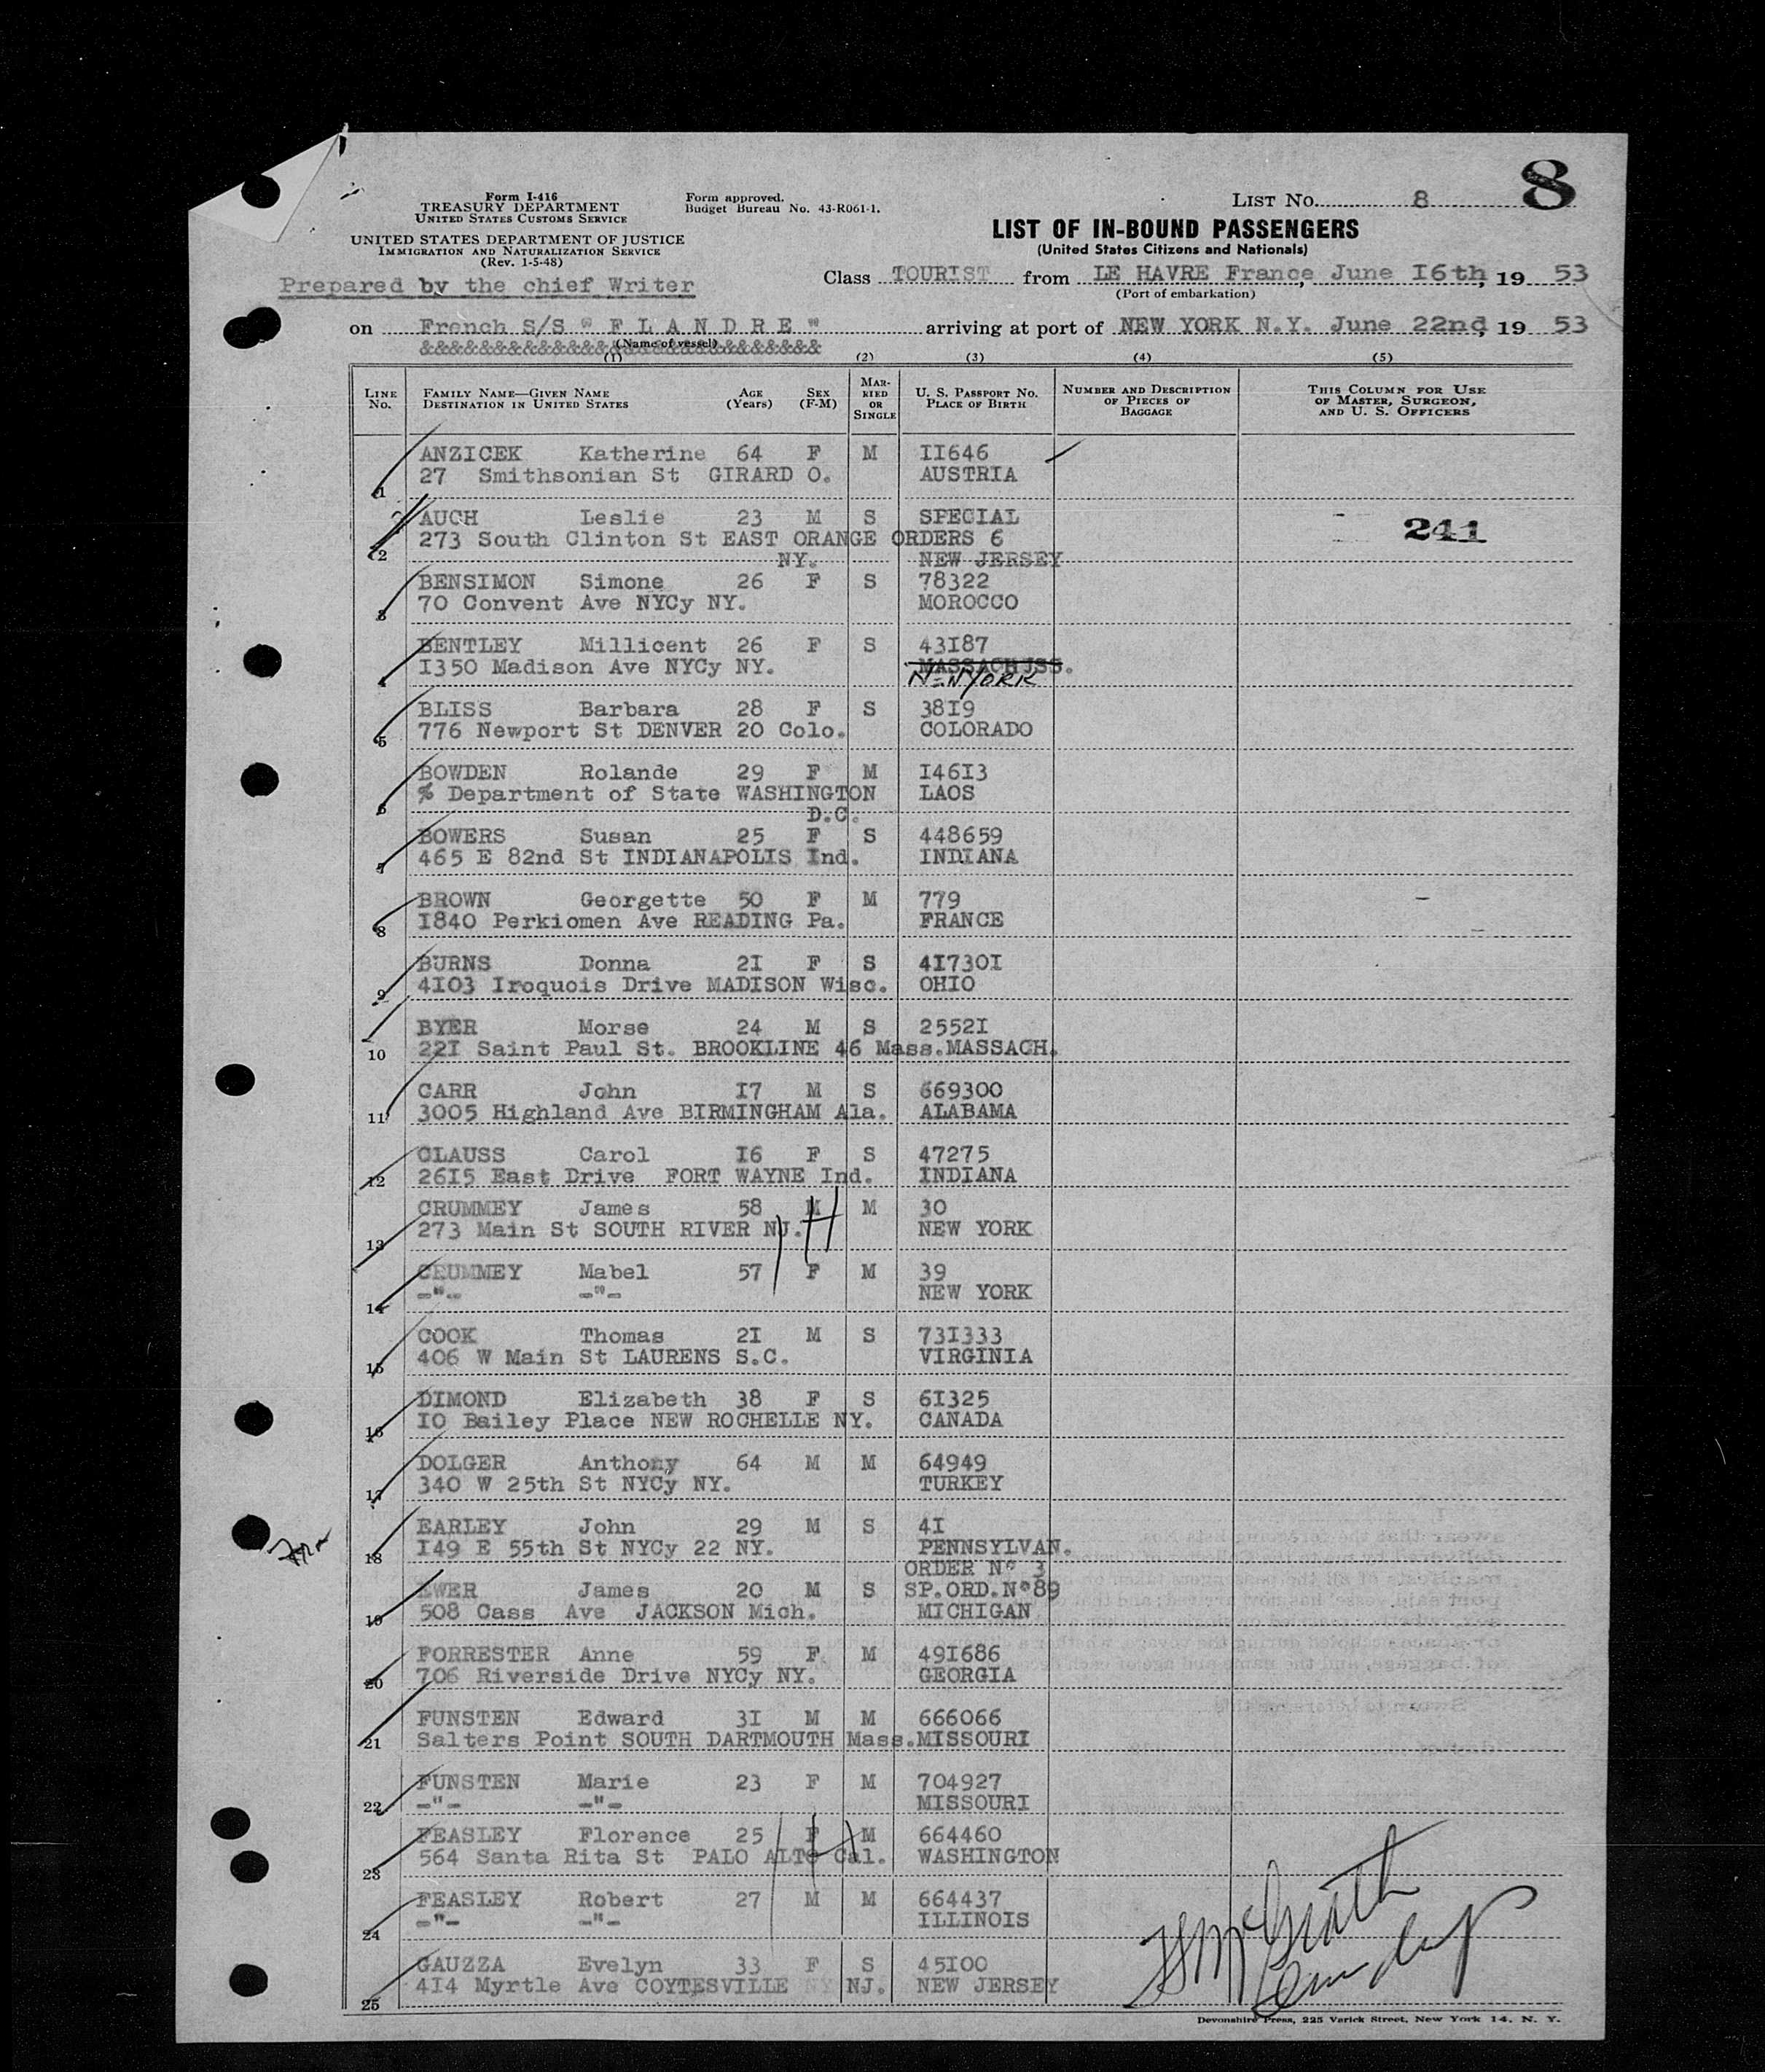 8
Form I-416
TREASURY DEPARTMENT
UNITED STATES CUSTOMS SERVICE
Form approved.
Budget Bureau No. 43-R061-1.
LIST NO. 8
UNITED STATES DEPARTMENT OF JUSTICE
IMMIGRATION AND NATURALIZATION SERVICE
(Rev. 1-5-48)
LIST OF IN-BOUND PASSENGERS
(United States Citizens and Nationals)
Prepared by the chief Writer
Class TOURIST from LE HAVRE France, June I6th, 19 53
(Port of embarkation)
on French S/S " F L A N D R E " arriving at port of NEW YORK N.Y. June 22nd, 19 53
&&&&&&&&&&&&&&&&&&&&&&&&&&&
(Name of vessel)
(1) (2) (3) (4) (5)
LINE No. FAMILY NAME—GIVEN NAME DESTINATION IN UNITED STATES AGE (Years) SEX (F-M) MARRIED OR SINGLE U. S. PASSPORT NO. PLACE OF BIRTH NUMBER AND DESCRIPTION OF PIECES OF BAGGAGE THIS COLUMN FOR USE OF MASTER, SURGEON, AND U. S. OFFICERS
ANZICEK Katherine 64 F M II646
1 27 Smithsonian St GIRARD O. AUSTRIA
AUCH Leslie 23 M S SPECIAL
241
2 273 South Clinton St EAST ORANGE ORDERS 6
NY. NEW JERSEY
BENSIMON Simone 26 F S 78322
3 70 Convent Ave NYCy NY. MOROCCO
BENTLEY Millicent 26 F S 43I87
4 I350 Madison Ave NYCy NY. MASSACHUSS.
NEW YORK
BLISS Barbara 28 F S 38I9
5 776 Newport St DENVER 20 Colo. COLORADO
BOWDEN Rolande 29 F M I46I3
6 % Department of State WASHINGTON LAOS
D.C.
BOWERS Susan 25 F S 448659
7 465 E 82nd St INDIANAPOLIS Ind. INDIANA
BROWN Georgette 50 F M 779
8 I840 Perkiomen Ave READING Pa. FRANCE
BURNS Donna 2I F S 4I730I
9 4I03 Iroquois Drive MADISON Wisc. OHIO
BYER Morse 24 M S 2552I
10 22I Saint Paul St. BROOKLINE 46 Mass. MASSACH.
CARR John I7 M S 669300
11 3005 Highland Ave BIRMINGHAM Ala. ALABAMA
CLAUSS Carol I6 F S 47275
12 26I5 East Drive FORT WAYNE Ind. INDIANA
CRUMMEY James 58 M M 30
13 273 Main St SOUTH RIVER NJ. NEW YORK
CRUMMEY Mabel 57 F M 39
14 -"- -"- NEW YORK
COOK Thomas 2I M S 73I333
15 406 W Main St LAURENS S.C. VIRGINIA
DIMOND Elizabeth 38 F S 6I325
16 I0 Bailey Place NEW ROCHELLE NY. CANADA
DOLGER Anthony 64 M M 64949
17 340 W 25th St NYCy NY. TURKEY
EARLEY John 29 M S 4I
18 I49 E 55th St NYCy 22 NY. PENNSYLVAN.
ORDER N° 3
EWER James 20 M S SP.ORD.N°89
19 508 Cass Ave JACKSON Mich. MICHIGAN
FORRESTER Anne 59 F M 49I686
20 706 Riverside Drive NYCy NY. GEORGIA
FUNSTEN Edward 3I M M 666066
21 Salters Point SOUTH DARTMOUTH Mass. MISSOURI
FUNSTEN Marie 23 F M 704927
22 -"- -"- MISSOURI
FEASLEY Florence 25 F M 664460
23 564 Santa Rita St PALO ALTO Cal. WASHINGTON
FEASLEY Robert 27 M M 664437
24 -"- -"- ILLINOIS
GAUZZA Evelyn 33 F S 45I00
25 4I4 Myrtle Ave COYTESVILLE NY NJ. NEW JERSEY
Devonshire Press, 225 Varick Street, New York 14, N. Y.